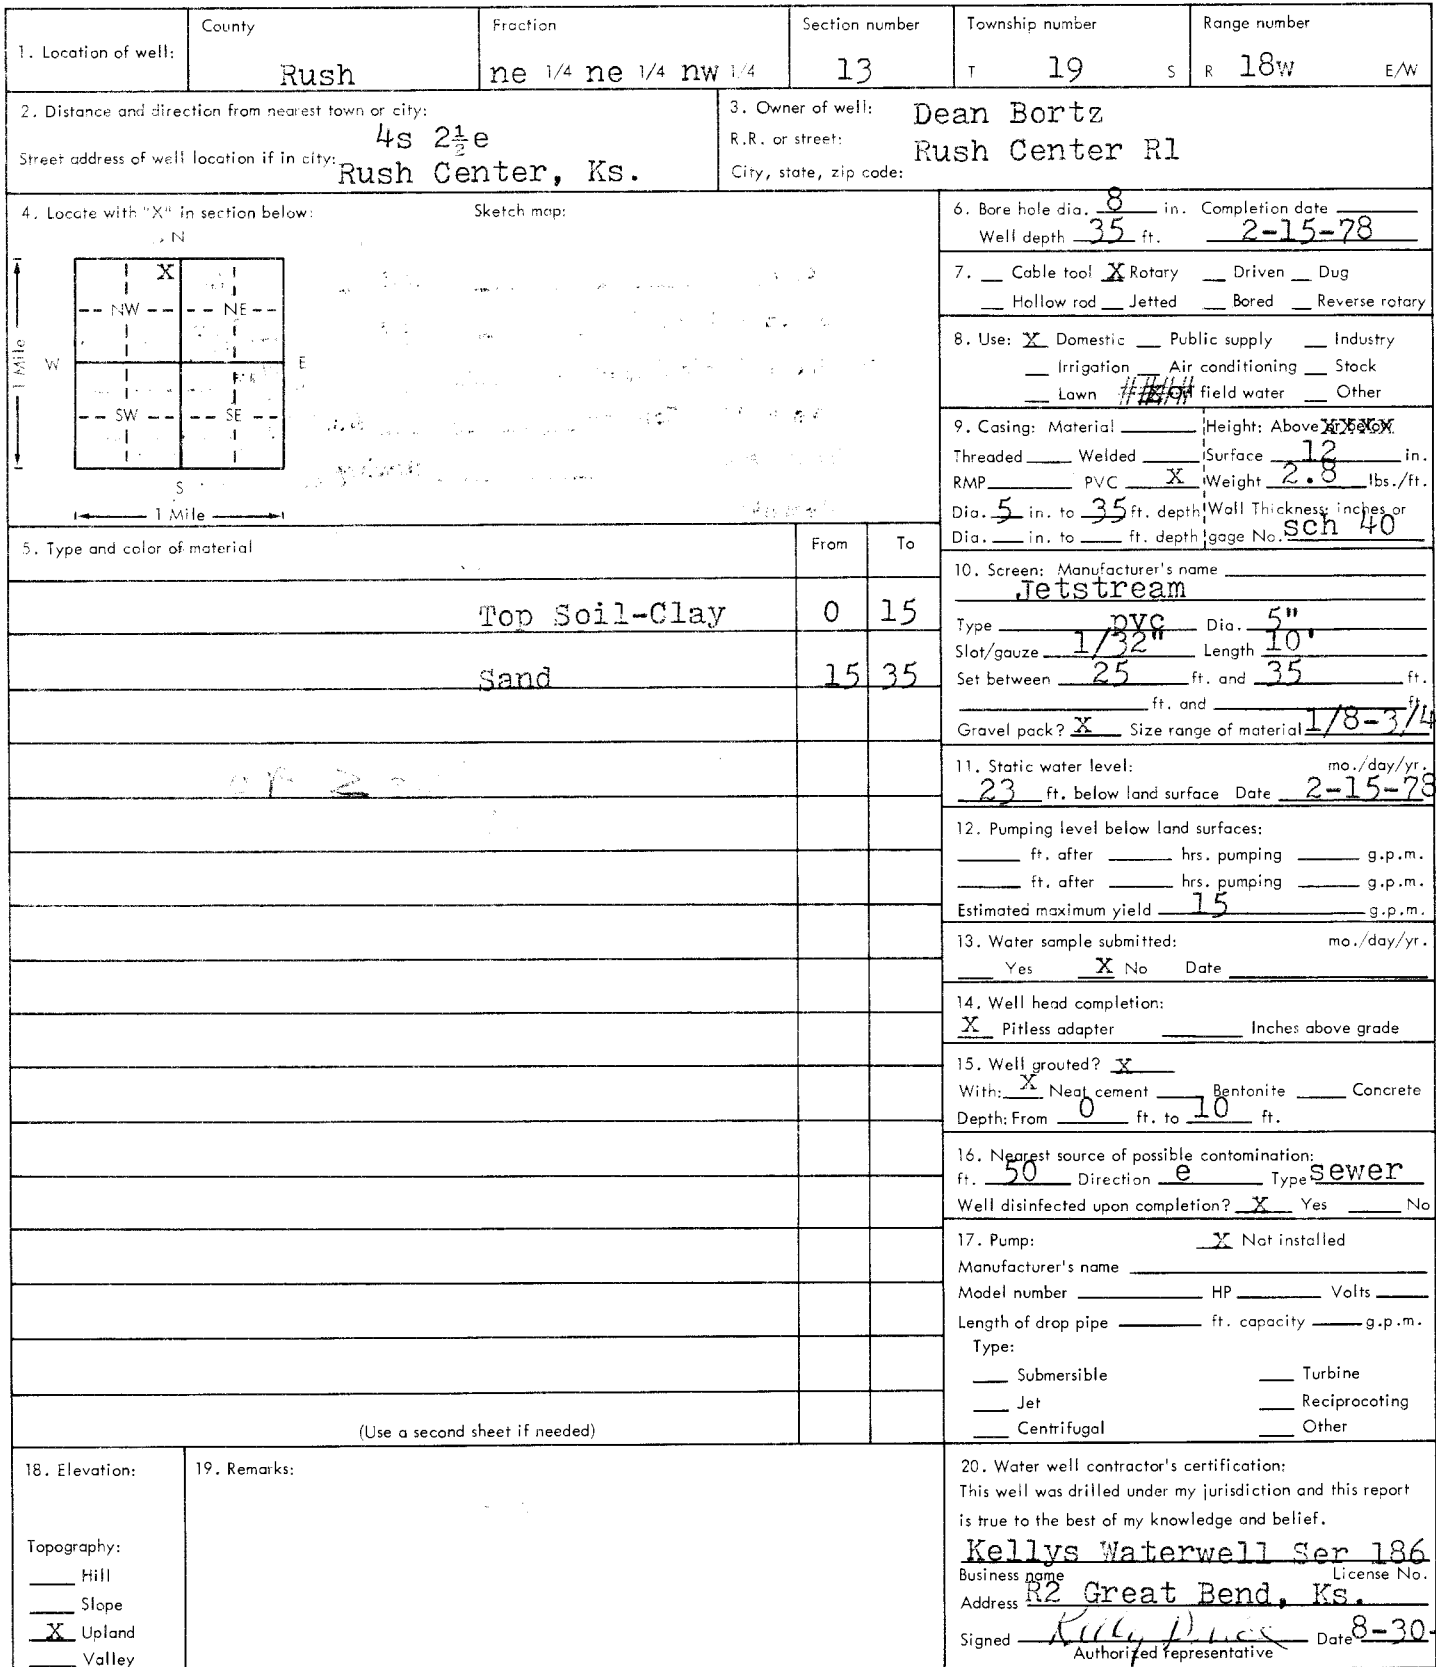 1. Location of well: County Fraction Section number Township number Range number
Rush ne 1/4 ne 1/4 nw 1/4 13 T 19 S R 18w E/W
2. Distance and direction from nearest town or city:
4s 2½e
Street address of well location if in city: Rush Center, Ks.
3. Owner of well: Dean Bortz
R.R. or street: Rush Center R1
City, state, zip code:
4. Locate with "X" in section below: Sketch map:
N
X
NW NE
W E
1 Mile
SW SE
S
1 Mile
5. Type and color of material From To
Top Soil-Clay 0 15
Sand 15 35
(Use a second sheet if needed)
6. Bore hole dia. 8 in. Completion date
Well depth 35 ft. 2-15-78
7. Cable tool X Rotary Driven Dug
Hollow rod Jetted Bored Reverse rotary
8. Use: X Domestic Public supply Industry
Irrigation Air conditioning Stock
Lawn field water Other
9. Casing: Material Height: Above
Threaded Welded Surface 12 in.
RMP PVC X Weight 2.8 lbs./ft.
Dia. 5 in. to 35 ft. depth Wall Thickness: inches or
Dia. in. to ft. depth gage No. sch 40
10. Screen: Manufacturer's name
Jetstream
Type pvc Dia. 5"
Slot/gauze 1/32" Length 10'
Set between 25 ft. and 35 ft.
ft. and ft.
Gravel pack? X Size range of material 1/8-3/4
11. Static water level: mo./day/yr.
23 ft. below land surface Date 2-15-78
12. Pumping level below land surfaces:
ft. after hrs. pumping g.p.m.
ft. after hrs. pumping g.p.m.
Estimated maximum yield 15 g.p.m.
13. Water sample submitted: mo./day/yr.
Yes X No Date
14. Well head completion:
X Pitless adapter Inches above grade
15. Well grouted? X
With: X Neat cement Bentonite Concrete
Depth: From 0 ft. to 10 ft.
16. Nearest source of possible contomination:
ft. 50 Direction e Type sewer
Well disinfected upon completion? X Yes No
17. Pump: X Not installed
Manufacturer's name
Model number HP Volts
Length of drop pipe ft. capacity g.p.m.
Type:
Submersible Turbine
Jet Reciprocoting
Centrifugal Other
18. Elevation:
Topography:
Hill
Slope
X Upland
Valley
19. Remarks:
20. Water well contractor's certification:
This well was drilled under my jurisdiction and this report
is true to the best of my knowledge and belief.
Kellys Waterwell Ser 186
Business name License No.
Address R2 Great Bend, Ks.
Signed Kelly Price Date 8-30-
Authorized representative